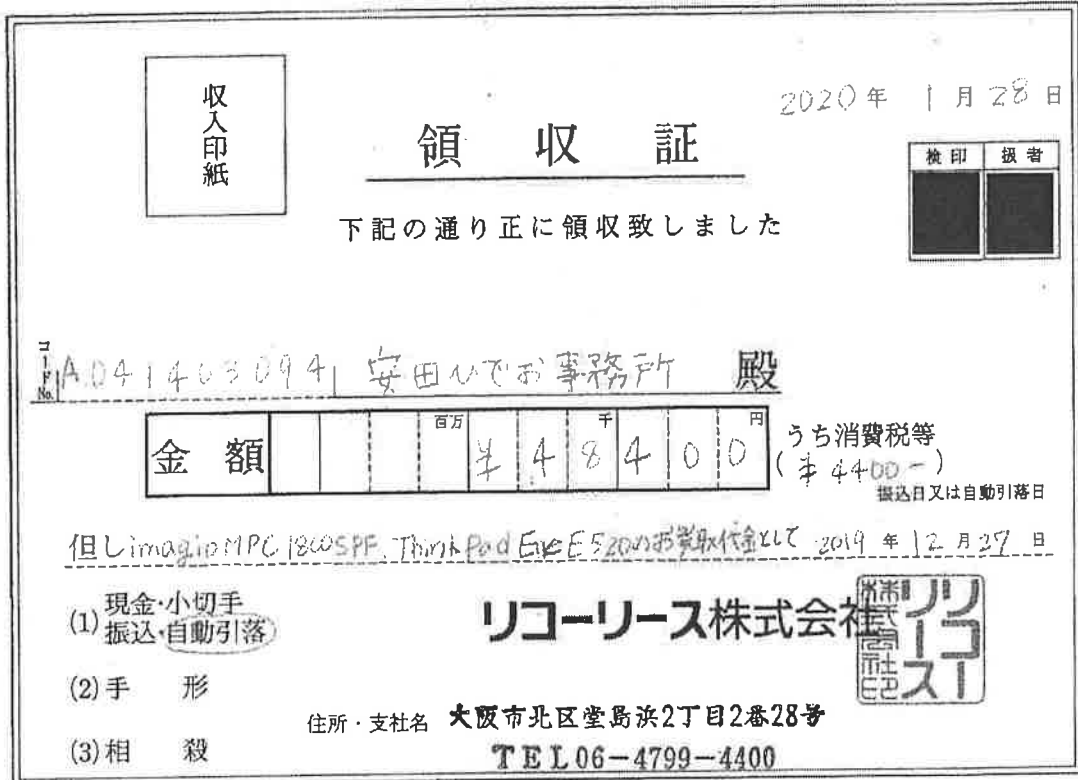 収入印紙
2020年 1月28日
領収証
検印 扱者
下記の通り正に領収致しました
コードNo. A041403094 安田ひでお事務所 殿
金額 百万 千 円 ¥48400
うち消費税等
(¥4400-)
振込日又は自動引落日
但しimagio MPC 1800SPF. ThinkPad E520のお買取代金として 2019年12月27日
(1) 現金・小切手
振込・自動引落
リコーリース株式会社
リコーリース株式会社印
(2)手 形
住所・支社名 大阪市北区堂島浜2丁目2番28号
(3)相 殺
TEL06-4799-4400